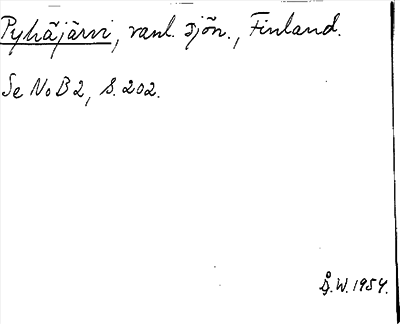 Pyhäjärvi, vanl. sjön., Finland.
Se NoB 2, s. 202.
Å.W. 1954.